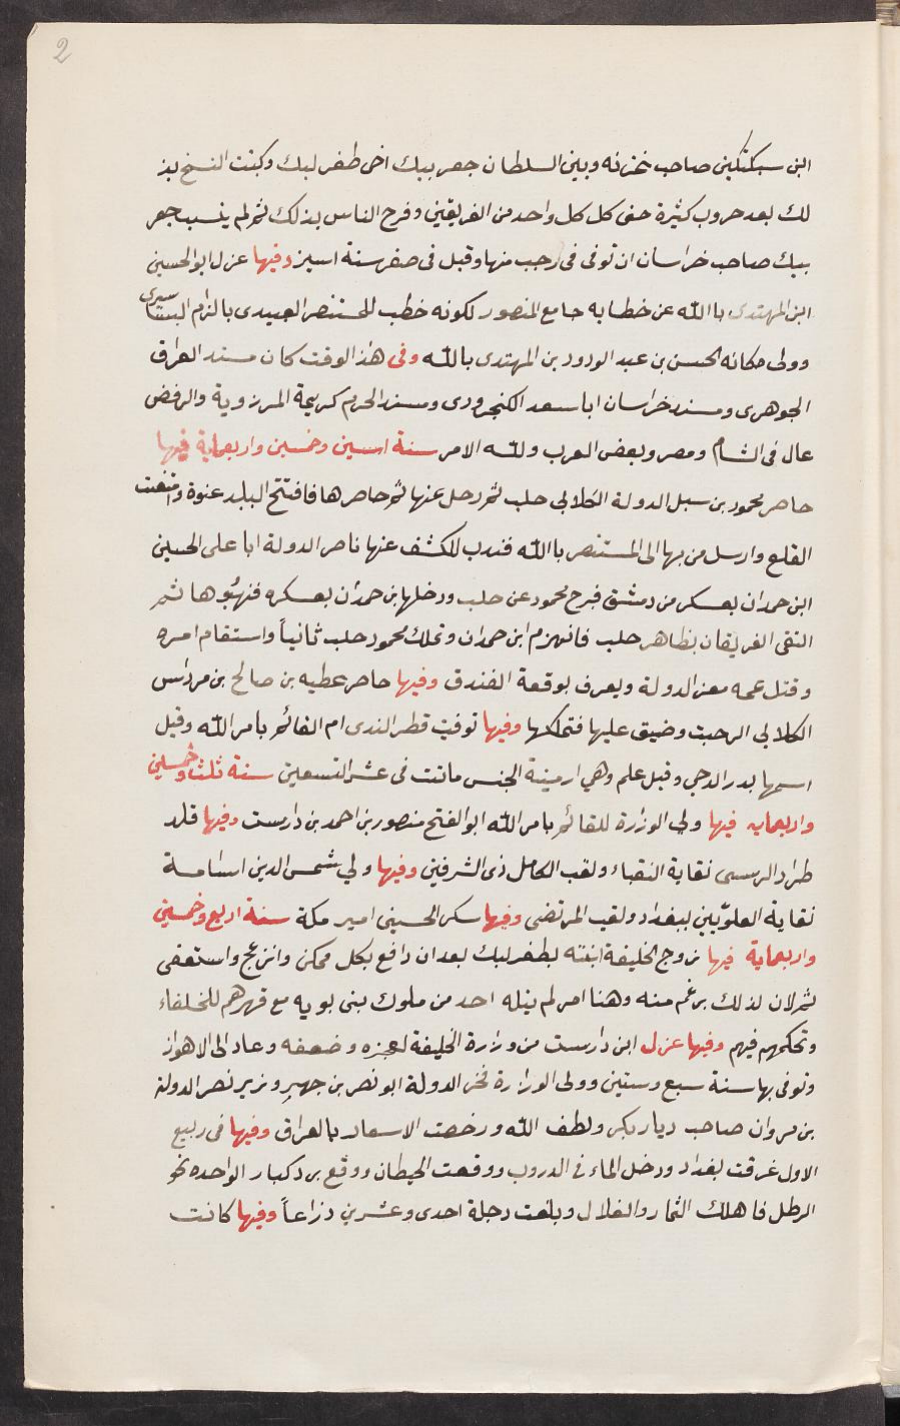 2
ابن سبكتكين صاحب غزنه وبين السلطان جعر بيك اخى طغر لبك وكتبت النسخ بذ
لك بعد حروب كثيرة حتى كل كل واحد من الفريقين وفرح الناس بذلك ثم لم ينسب جعر
بيك صاحب خراسان ان توفى فى رجب منها وقبل فى صفر سنة اسين وفيها عزل ابو الحسين
ابن المهتدى باالله عن خطابه جامع المنصور لكونه خطب للمستنصر العبيدى بالزام البساسيرى
وولى مكانه الحسن بن عبد الودود بن المهتدى بالله وفى هذا الوقت كان مسند العراق
الجوهرى ومسند خراسان ابا سعد الكنجرودى ومسند الحرم كريمة المرزوية والرفض
عال فى الشام ومصر وبعض العرب ولله الامر سنة اسين وخمسين واربعماية فيها
حاصر محمود بن سبل الدولة الكلابى حلب ثم رحل عنها ثم حاصرها فافتتح البلد عنوة وامتنعت
القلع وارسل من بها الى المستنصر باالله فندب للكشف عنها ناصر الدولة ابا على الحسين
ابن حمدان بعسكر من دمشق فبرح محمود عن حلب ودخلها بن حمدان بعسكره فنهبوها ثم
التقى الفريقان بظاهر حلب فانهزم ابن حمدان وتملك محمود حلب ثانياً واستقام امره
وقتل عمه معز الدولة ويعرف بوقعة الفندق وفيها حاصر عطيه بن صالح بن مرداس
الكلابى الرحبت وضيق عليها فتملكها وفيها توفيت قطر الندى ام القائم بأمر الله وقيل
اسمها بدر الدجى وقيل علم وهي ارمينة الجنس ماتت فى عشر التسعين سنة ثلث وخمسين
واربعمايه فيها ولي الوزارة للقائم بامر الله ابو الفتح منصور بن احمد بن دارست وفيها قلد
طراد الرسبى نقابة النقباء ولقب الكامل ذى الشرفين وفيها ولي شمس الدين اسامة
نقابة العلويين ببغداد ولقب المرتضى وفيها سكر الحسينى امير مكة سنة اربع وخمسين
واربعماية فيها زوج الخليفة ابنته بطغر لبك بعد ان دافع بكل ممكن وانزعج واستعفى
ثم لان لذلك برغم منه وهنا امر لم ينله احد من ملوك بنى بويه مع قهرهم للخلفاء
وتحكمهم فيهم وفيها عزل ابن دارست من وزارة الخليفة لعجزه وضعفه وعاد الى الاهواز
وتوفى بها سنة سبع وستين وولى الوزارة فخر الدولة ابو نصر بن جهير وزير نصر الدولة
بن مروان صاحب ديار بكر ولطف الله ورخصت الاسعار بالعراق وفيها فى ربيع
الاول غرقت بغداد ودخل الماء فى الدروب ووقعت الحيطان ووقع برد كبار الواحده نحو
الرطل فاهلك الثمار والغلال وبلغت دجلة احدى وعشرين ذراعاً وفيها كانت